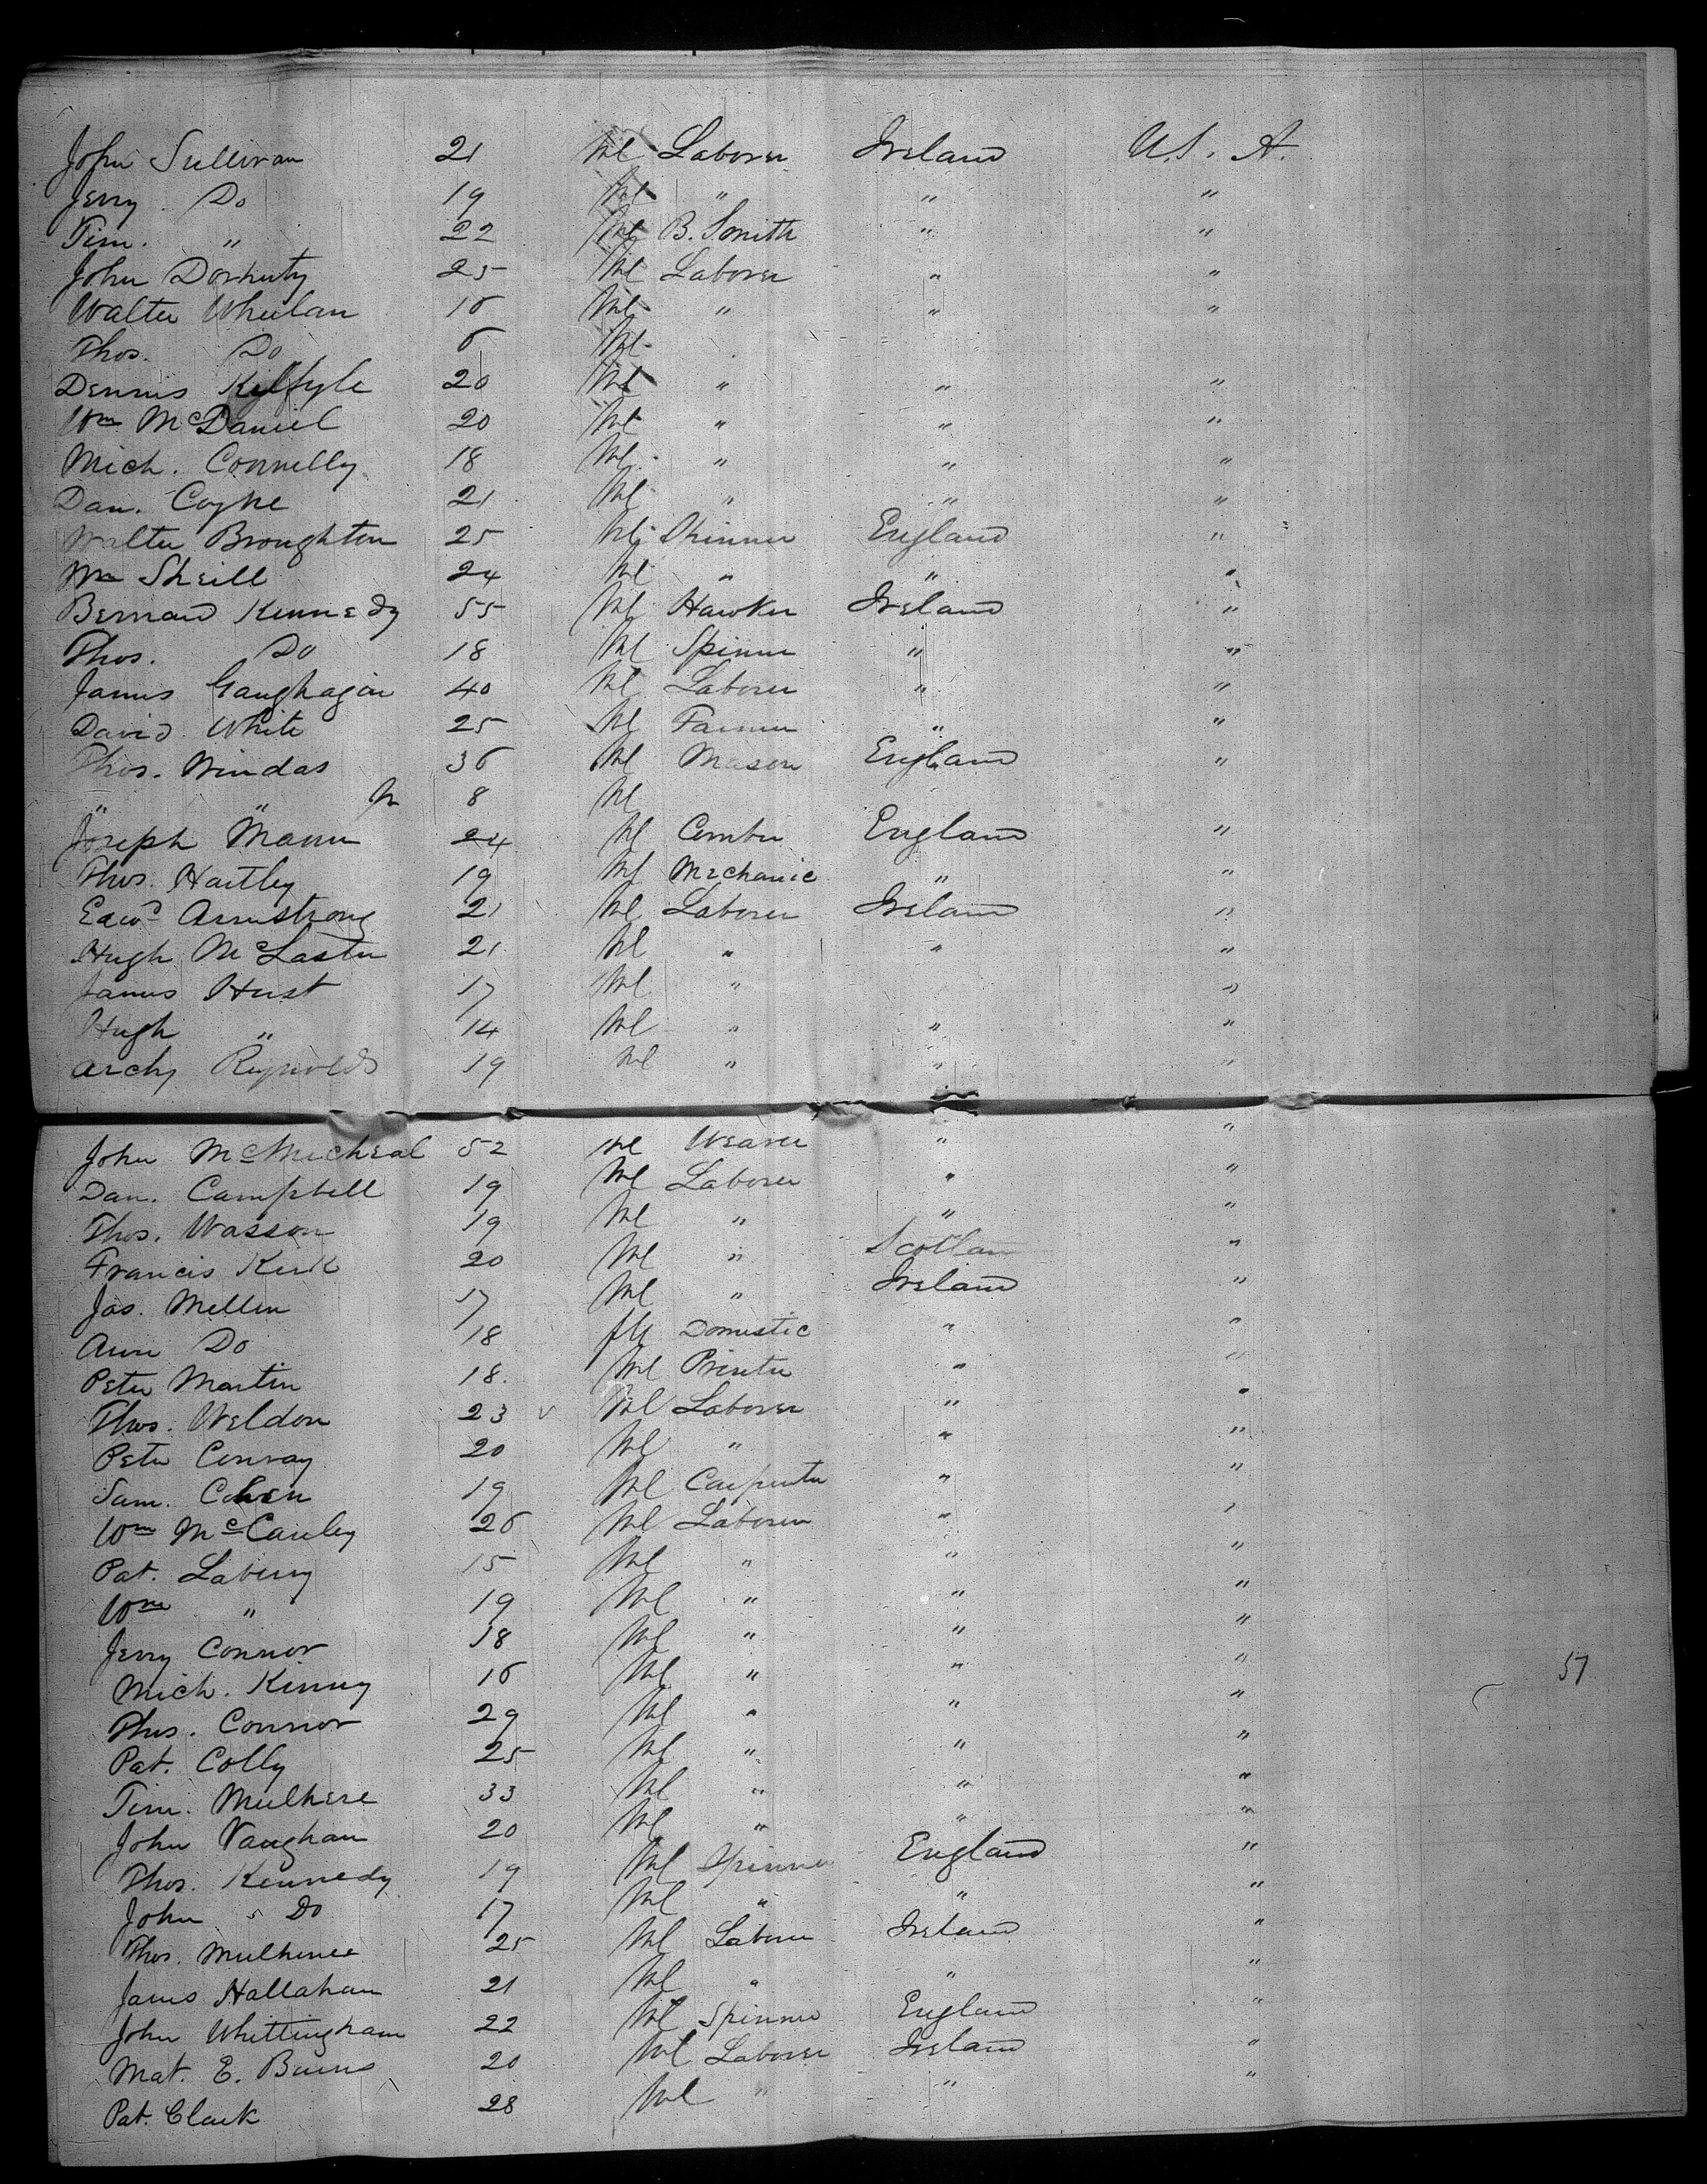 John Sullivan 21 Ml Laborer Ireland U.S.A.
Jerry Do 19 Ml " " "
Tim. " 22 Ml B. Smith " "
John Dorherty 25 Ml Laborer " "
Walter Wheelan 16 Ml " " "
Thos. Do 6 Ml
Dennis 20 Ml " " "
Wm McDaniel 20 Ml " " "
Mich. Connelly 18 Ml " " "
Dan. Coyne 21 Ml " " "
Walter Broughton 25 Ml England "
Wm Sheill 24 Ml " " "
Bernard Kennedy 55 Ml Hawker Ireland "
Thos. Do 18 Ml Spinner " "
James Gaughagan 40 Ml Laborer " "
David White 25 Ml Farmer " "
Thos. Windas 36 Ml Mason England "
" " Jr 8 Ml
Joseph Mann 24 Ml Comber England "
Thos. Hartley 19 Ml Mechanic " "
Edwd Armstrong 21 Ml Laborer Ireland "
Hugh McLaster 21 Ml " " "
James Hust 17 Ml " "
Hugh " 14 Ml " " "
Archy Reynolds 19 Ml " " "
John McMicheal 52 Ml Weaver " "
Dan. Campbell 19 Ml Laborer " "
Thos. Wasson 19 Ml " " "
Francis Kirk 20 Ml " Scotlan "
Jas. Mellen 17 Ml " Ireland "
Ann Do 18 fM Domestic " "
Peter Martin 18. Ml Printer " "
Thos. Weldon 23 Ml Laborer " "
Peter Conway 20 Ml " " "
Sam. Cohen 19 Ml Carpenter " "
Wm McCauley 26 Ml Laborer " "
Pat. Laberry 15 Ml " " "
Wm " 19 Ml " " "
Jerry Connor 18 Ml " " "
Mich. Kinny 16 Ml " " " 57
Thos. Connor 29 Ml " " "
Pat. Colly 25 Ml " " "
Tim. Mulhere 33 Ml " " "
John Vaughan 20 Ml " " "
Thos. Kennedy 19 Ml Spinner England "
John Do 17 Ml " " "
Thos. 25 Ml Laborer Ireland "
James Hallahan 21 Ml " " "
John Whittingham 22 Ml Spinner England "
Mat. E. Burns 20 Ml Laborer Ireland "
Pat. Clark 28 Ml " " "